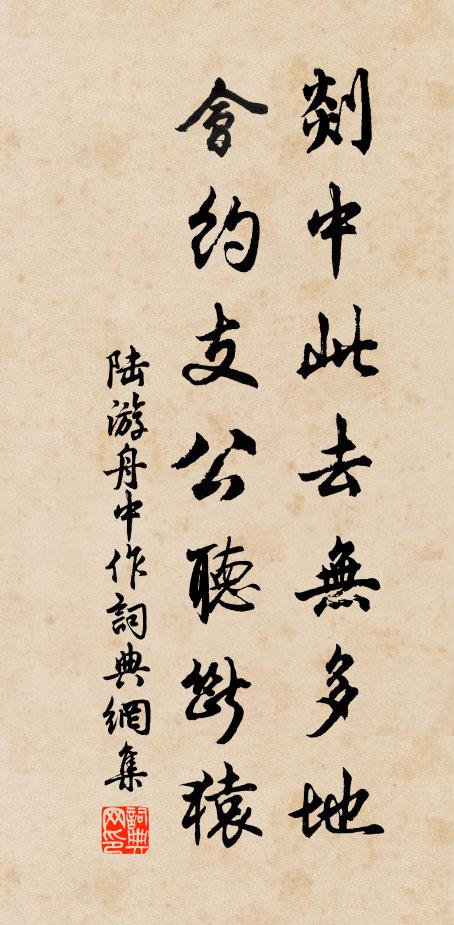 剡中此去無多地
會約支公聽斷猿
陆游舟中作詞典網集
詞典網印